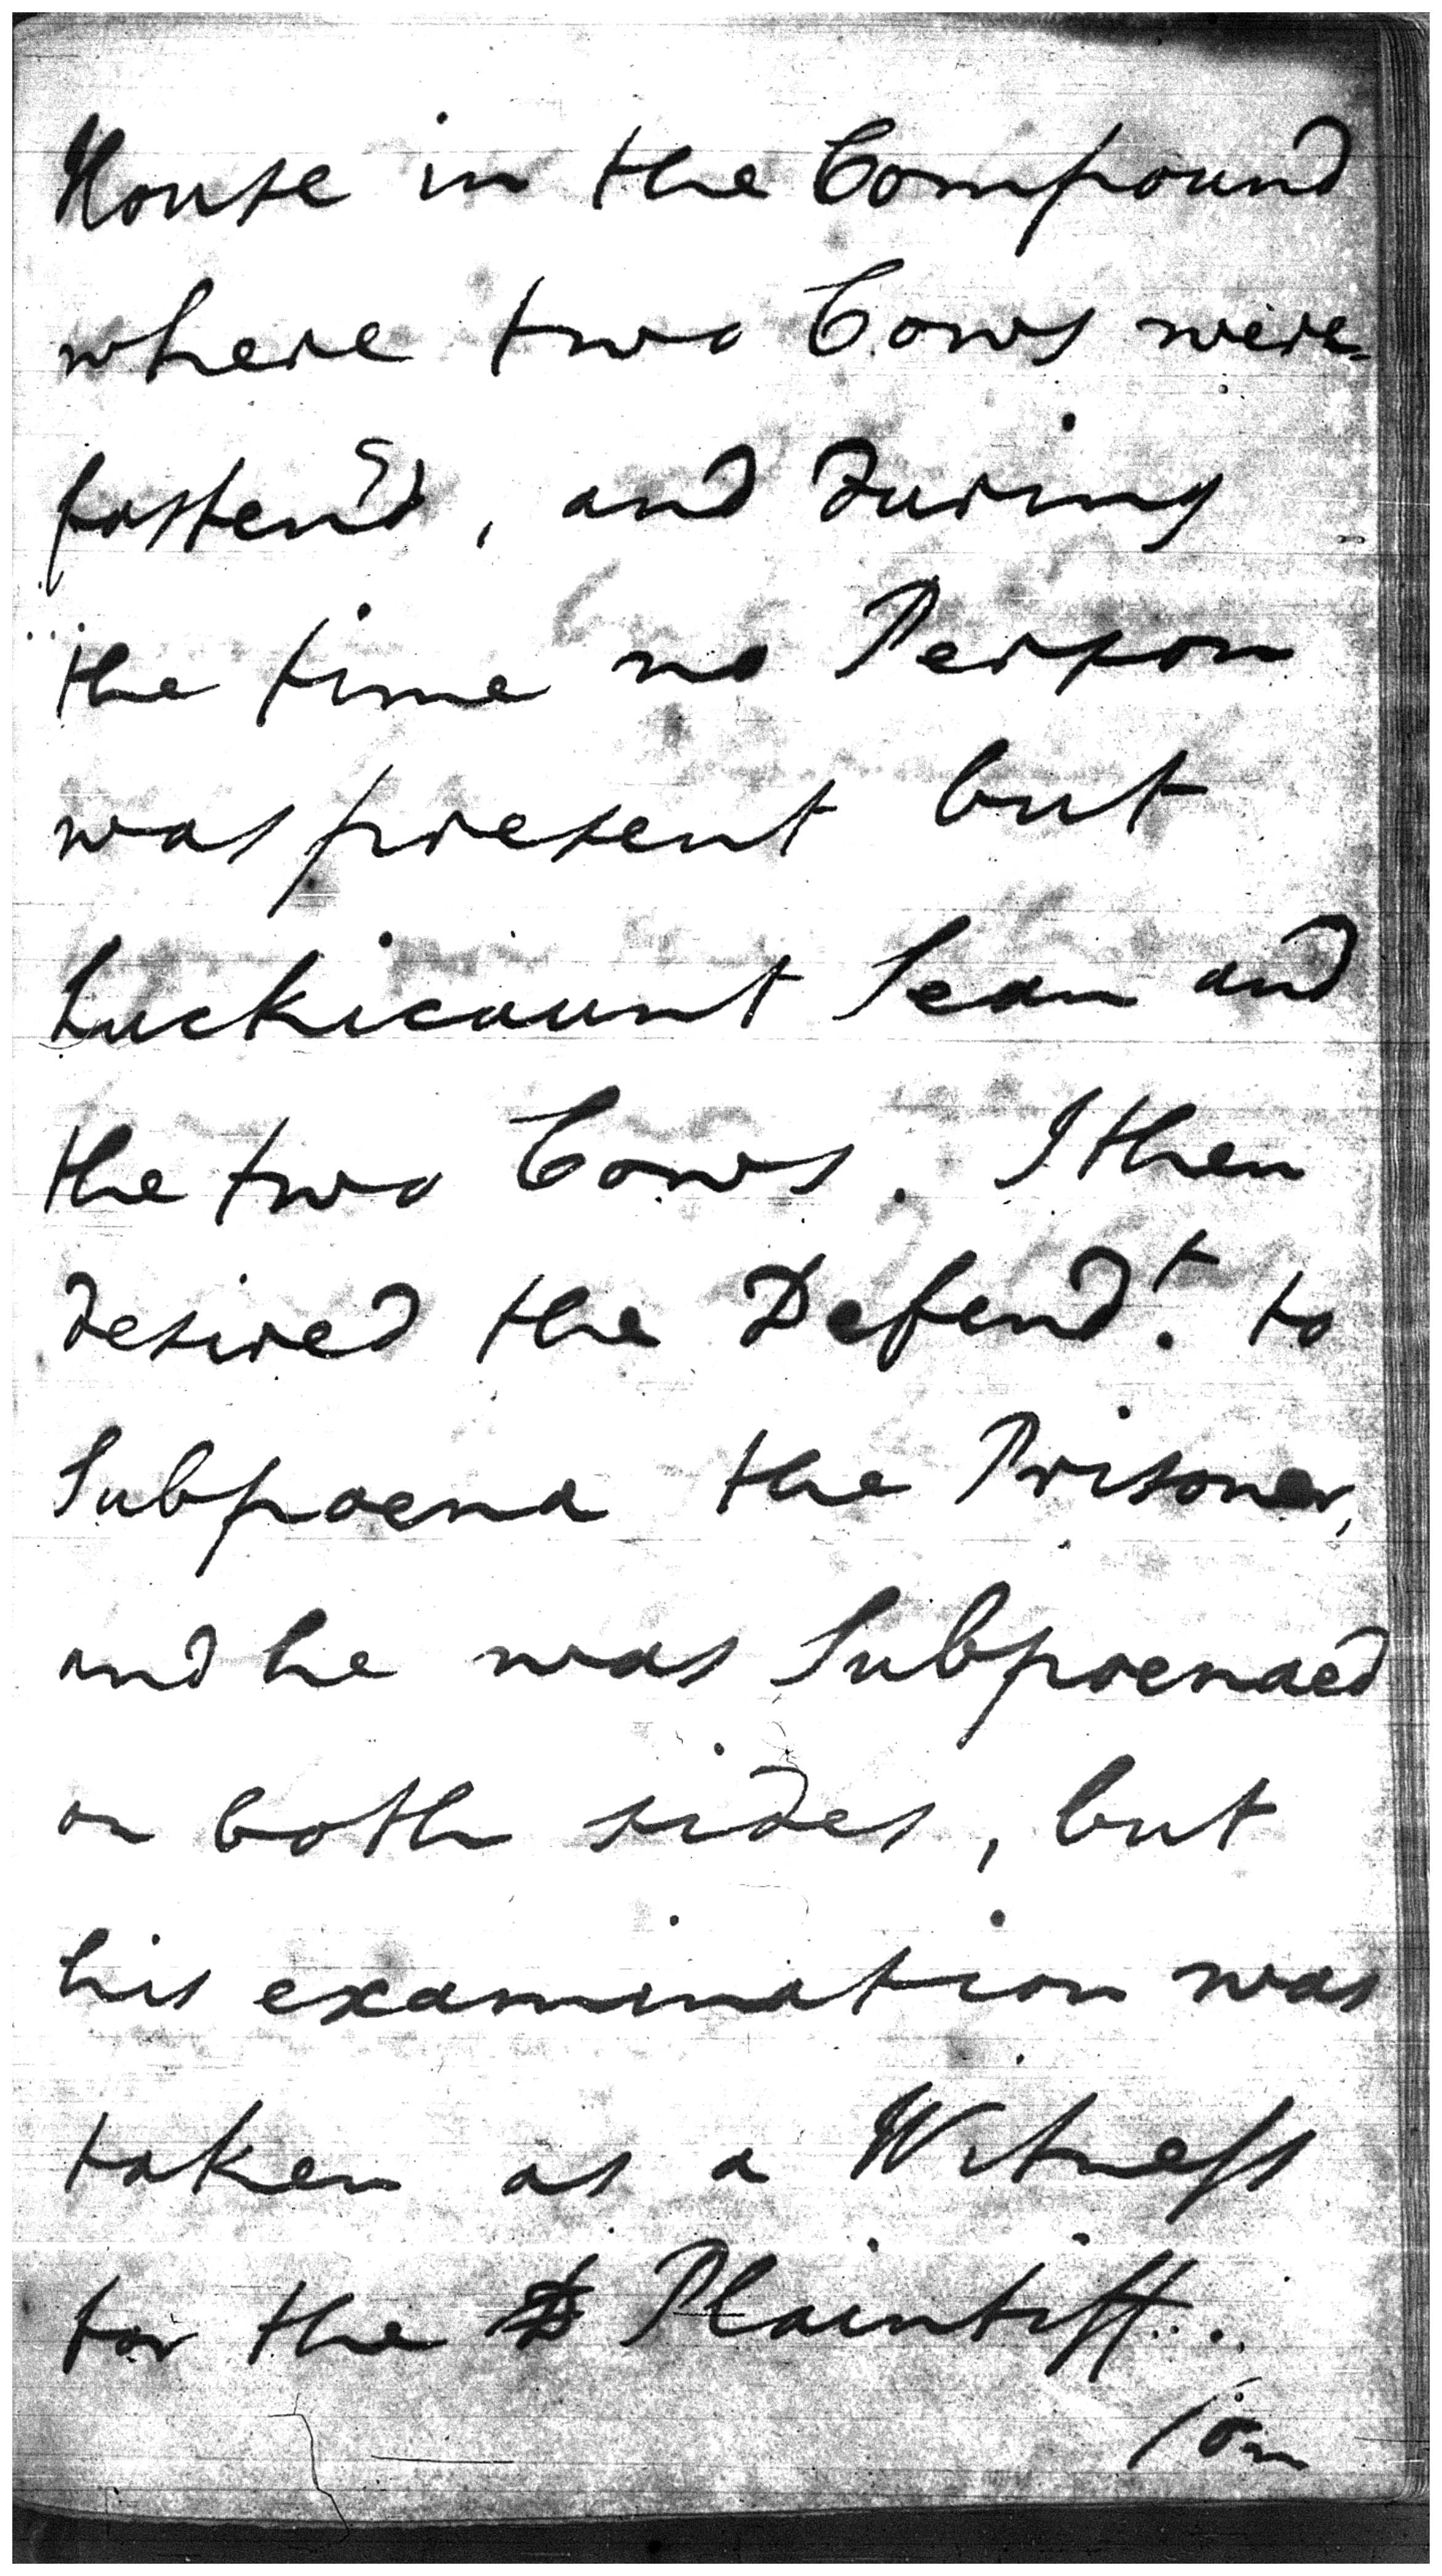 House in the Compound
where two Cows were
fasten'd, and during
the time no Person
was present but
Luckicaunt Sean and
the two Cows. I then
desired the Defend.t to
Subpoena the Prisoner,
and he was Subpoenaed
on both sides, but
his examination was
taken as a Witness
for the D Plaintiff.
/on